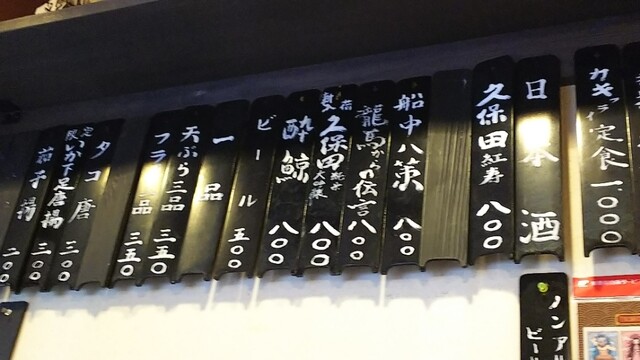 カキフライ定食 一、〇〇〇
日本酒
久保田 紅寿 八〇〇
船中八策 八〇〇
龍馬からの伝言 八〇〇
久保田 純米大吟醸 八〇〇
酔鯨 八〇〇
ビール 五〇〇
一品
天ぷら三品 三五〇
フライ二品 三五〇
タコ唐
定限 いか下足唐揚 三〇〇
茄子揚 三〇〇
二〇〇
ノンアル
ビール